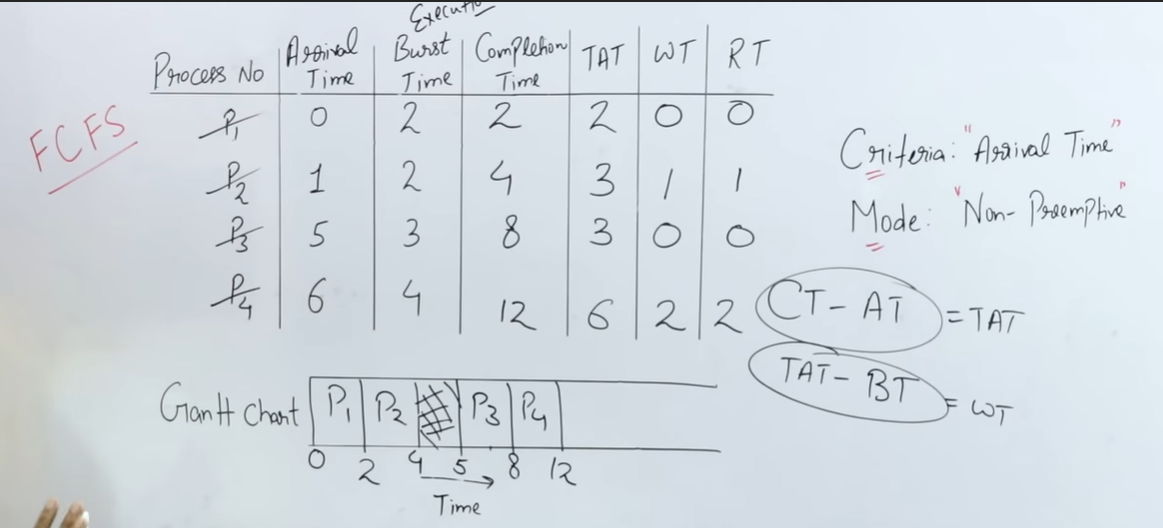 Execution
Process No Arrival Time Burst Time Completion Time TAT WT RT
FCFS
P1 0 2 2 2 0 0
P2 1 2 4 3 1 1
P3 5 3 8 3 0 0
P4 6 4 12 6 2 2
Criteria: "Arrival Time"
Mode: "Non-Preemptive"
CT - AT = TAT
TAT - BT = WT
Gantt Chart P1 P2 P3 P4
0 2 4 5 8 12
Time